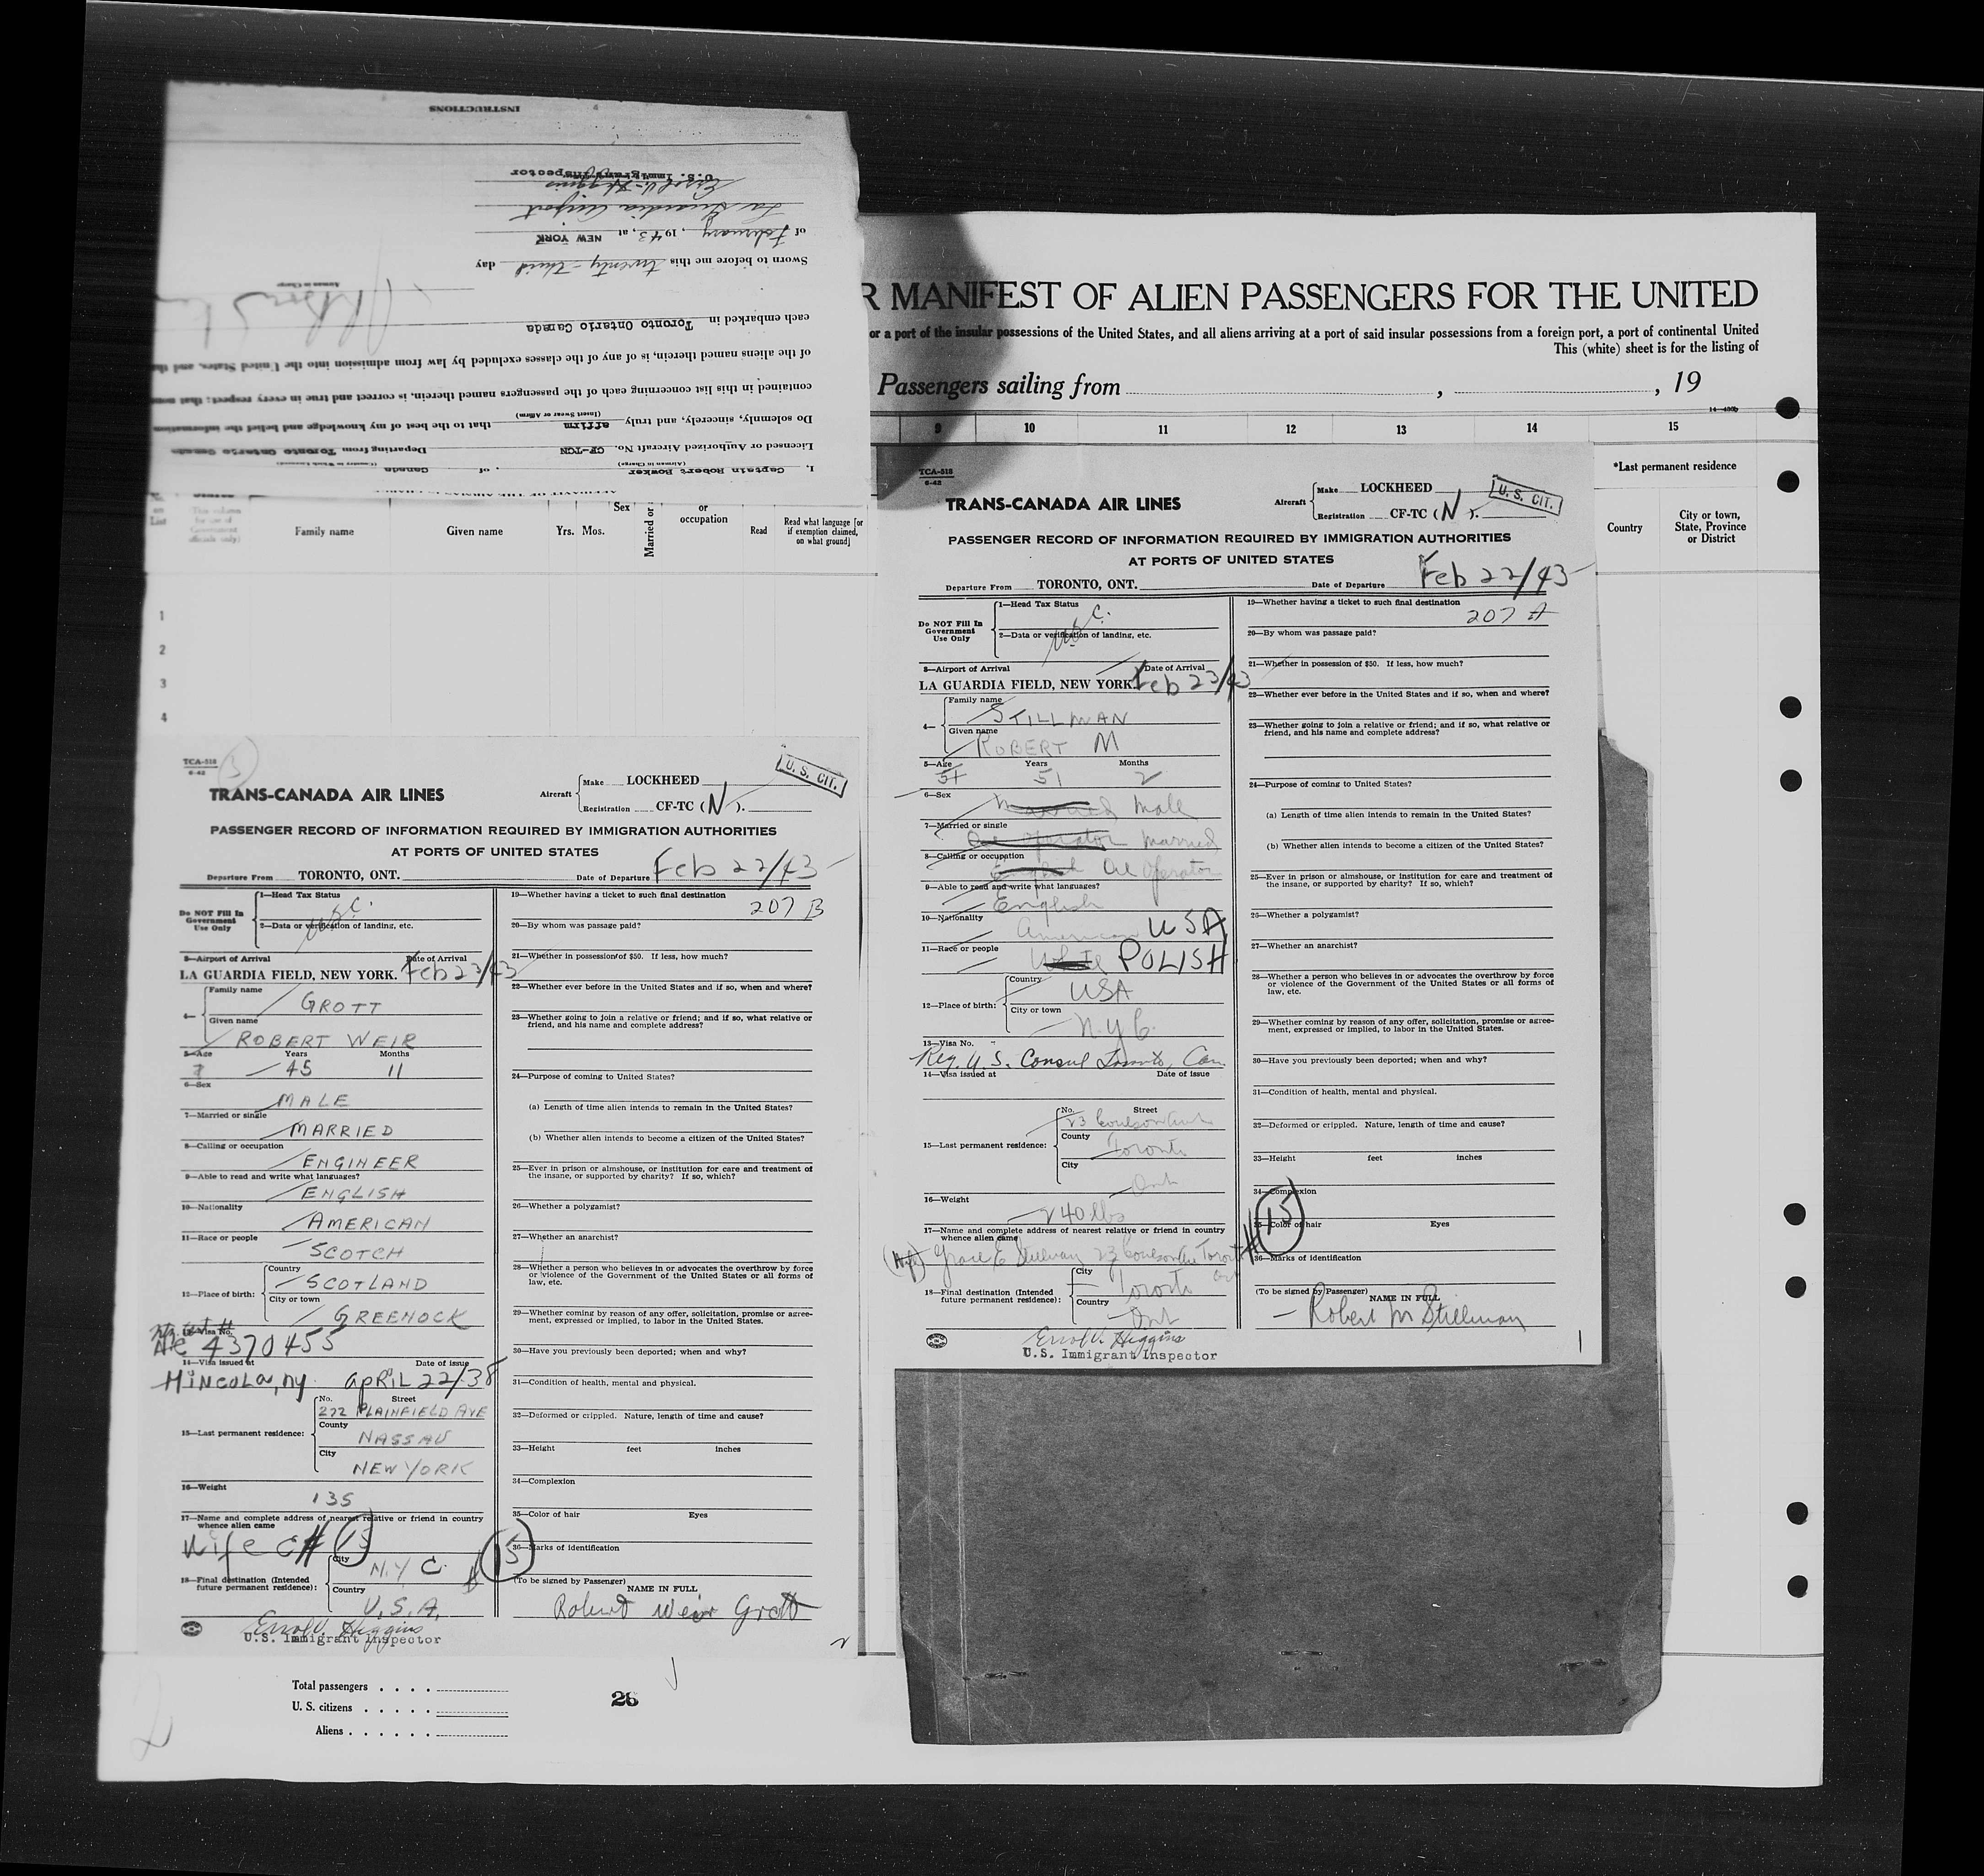 INSTRUCTIONS
U.S. Immigrant Inspector
Errol V. Higgins
La Guardia Airport
of February, 1943, at NEW YORK
Sworn to before me this twenty-third day
Airman in Charge
each embarked in Toronto Ontario Canada
of the aliens named therein, is of any of the classes excluded by law from admission into the United States, and
contained in this list concerning each of the passengers named therein, is correct and true in every respect; that none
Do solemnly, sincerely, and truly affirm that to the best of my knowledge and belief the information
(Insert Swear or Affirm)
Licensed or Authorized Aircraft No. CF-TCN Departing from Toronto Ontario Canada
(Airman in Charge)
I, Captain Robert Bowker of Canada
List
Family name
Given name
Yrs. Mos.
Sex
Married or
or occupation
Read
Read what language [or if exemption claimed, on what ground]
1
2
3
4
TCA-518
6-42
TRANS-CANADA AIR LINES
Aircraft Make LOCKHEED
Registration CF-TC (N).
U. S. CIT.
PASSENGER RECORD OF INFORMATION REQUIRED BY IMMIGRATION AUTHORITIES
AT PORTS OF UNITED STATES
Departure From TORONTO, ONT. Date of Departure Feb 22/43
Do NOT Fill In Government Use Only
1—Head Tax Status
2—Data or verification of landing, etc.
3—Airport of Arrival Date of Arrival
LA GUARDIA FIELD, NEW YORK. Feb 23/43
4— Family name GROTT
Given name ROBERT WEIR
5—Age Years Months
45 11
6—Sex MALE
7—Married or single MARRIED
8—Calling or occupation ENGINEER
9—Able to read and write what languages? ENGLISH
10—Nationality AMERICAN
11—Race or people SCOTCH
12—Place of birth: Country SCOTLAND
City or town GREENOCK
13—Visa No. 4370455
14—Visa issued at Date of issue
MINEOLA, NY. APRIL 22/38
15—Last permanent residence: No. Street 272 PLAINFIELD AVE
County NASSAU
City NEW YORK
16—Weight 135
17—Name and complete address of nearest relative or friend in country whence alien came
Wife C# 15
18—Final destination (Intended future permanent residence): City N.Y C.
Country U.S.A.
Errol V. Higgins
U.S. Immigrant Inspector
19—Whether having a ticket to such final destination
207 B
20—By whom was passage paid?
21—Whether in possession of $50. If less, how much?
22—Whether ever before in the United States and if so, when and where?
23—Whether going to join a relative or friend; and if so, what relative or friend, and his name and complete address?
24—Purpose of coming to United States?
(a) Length of time alien intends to remain in the United States?
(b) Whether alien intends to become a citizen of the United States?
25—Ever in prison or almshouse, or institution for care and treatment of the insane, or supported by charity? If so, which?
26—Whether a polygamist?
27—Whether an anarchist?
28—Whether a person who believes in or advocates the overthrow by force or violence of the Government of the United States or all forms of law, etc.
29—Whether coming by reason of any offer, solicitation, promise or agreement, expressed or implied, to labor in the United States.
30—Have you previously been deported; when and why?
31—Condition of health, mental and physical.
32—Deformed or crippled. Nature, length of time and cause?
33—Height feet inches
34—Complexion
35—Color of hair Eyes
15
36—Marks of identification
(To be signed by Passenger)
NAME IN FULL
Robert Weir Grott
2
Total passengers
U. S. citizens
Aliens
26
R MANIFEST OF ALIEN PASSENGERS FOR THE UNITED
or a port of the insular possessions of the United States, and all aliens arriving at a port of said insular possessions from a foreign port, a port of continental United
This (white) sheet is for the listing of
Passengers sailing from , , 19
9 10 11 12 13 14 15
*Last permanent residence
Country
City or town, State, Province or District
TCA-518
6-42
TRANS-CANADA AIR LINES
Aircraft Make LOCKHEED
Registration CF-TC (N).
U. S. CIT.
PASSENGER RECORD OF INFORMATION REQUIRED BY IMMIGRATION AUTHORITIES
AT PORTS OF UNITED STATES
Departure From TORONTO, ONT. Date of Departure Feb 22/43
Do NOT Fill In Government Use Only
1—Head Tax Status
2—Data or verification of landing, etc.
3—Airport of Arrival Date of Arrival
LA GUARDIA FIELD, NEW YORK. Feb 23/43
4— Family name STILLMAN
Given name ROBERT M
5—Age Years Months
51 51 2
6—Sex Male
7—Married or single Married
8—Calling or occupation Oil Operator
9—Able to read and write what languages? English
10—Nationality American USA
11—Race or people White POLISH
12—Place of birth: Country USA
City or town N.Y.C.
13—Visa No.
Reg. U.S. Consul Toronto, Can.
14—Visa issued at Date of issue
15—Last permanent residence: No. Street 23 Coulson Ave
County Toronto
City Ont
16—Weight 240 lbs
17—Name and complete address of nearest relative or friend in country whence alien came
(Wife) Grace E Stillman 23 Coulson Ave Toronto Ont
18—Final destination (Intended future permanent residence): City Toronto
Country Ont
Errol V. Higgins
U.S. Immigrant Inspector
19—Whether having a ticket to such final destination
207 A
20—By whom was passage paid?
21—Whether in possession of $50. If less, how much?
22—Whether ever before in the United States and if so, when and where?
23—Whether going to join a relative or friend; and if so, what relative or friend, and his name and complete address?
24—Purpose of coming to United States?
(a) Length of time alien intends to remain in the United States?
(b) Whether alien intends to become a citizen of the United States?
25—Ever in prison or almshouse, or institution for care and treatment of the insane, or supported by charity? If so, which?
26—Whether a polygamist?
27—Whether an anarchist?
28—Whether a person who believes in or advocates the overthrow by force or violence of the Government of the United States or all forms of law, etc.
29—Whether coming by reason of any offer, solicitation, promise or agreement, expressed or implied, to labor in the United States.
30—Have you previously been deported; when and why?
31—Condition of health, mental and physical.
32—Deformed or crippled. Nature, length of time and cause?
33—Height feet inches
34—Complexion
15
35—Color of hair Eyes
36—Marks of identification
(To be signed by Passenger)
NAME IN FULL
Robert M Stillman
1